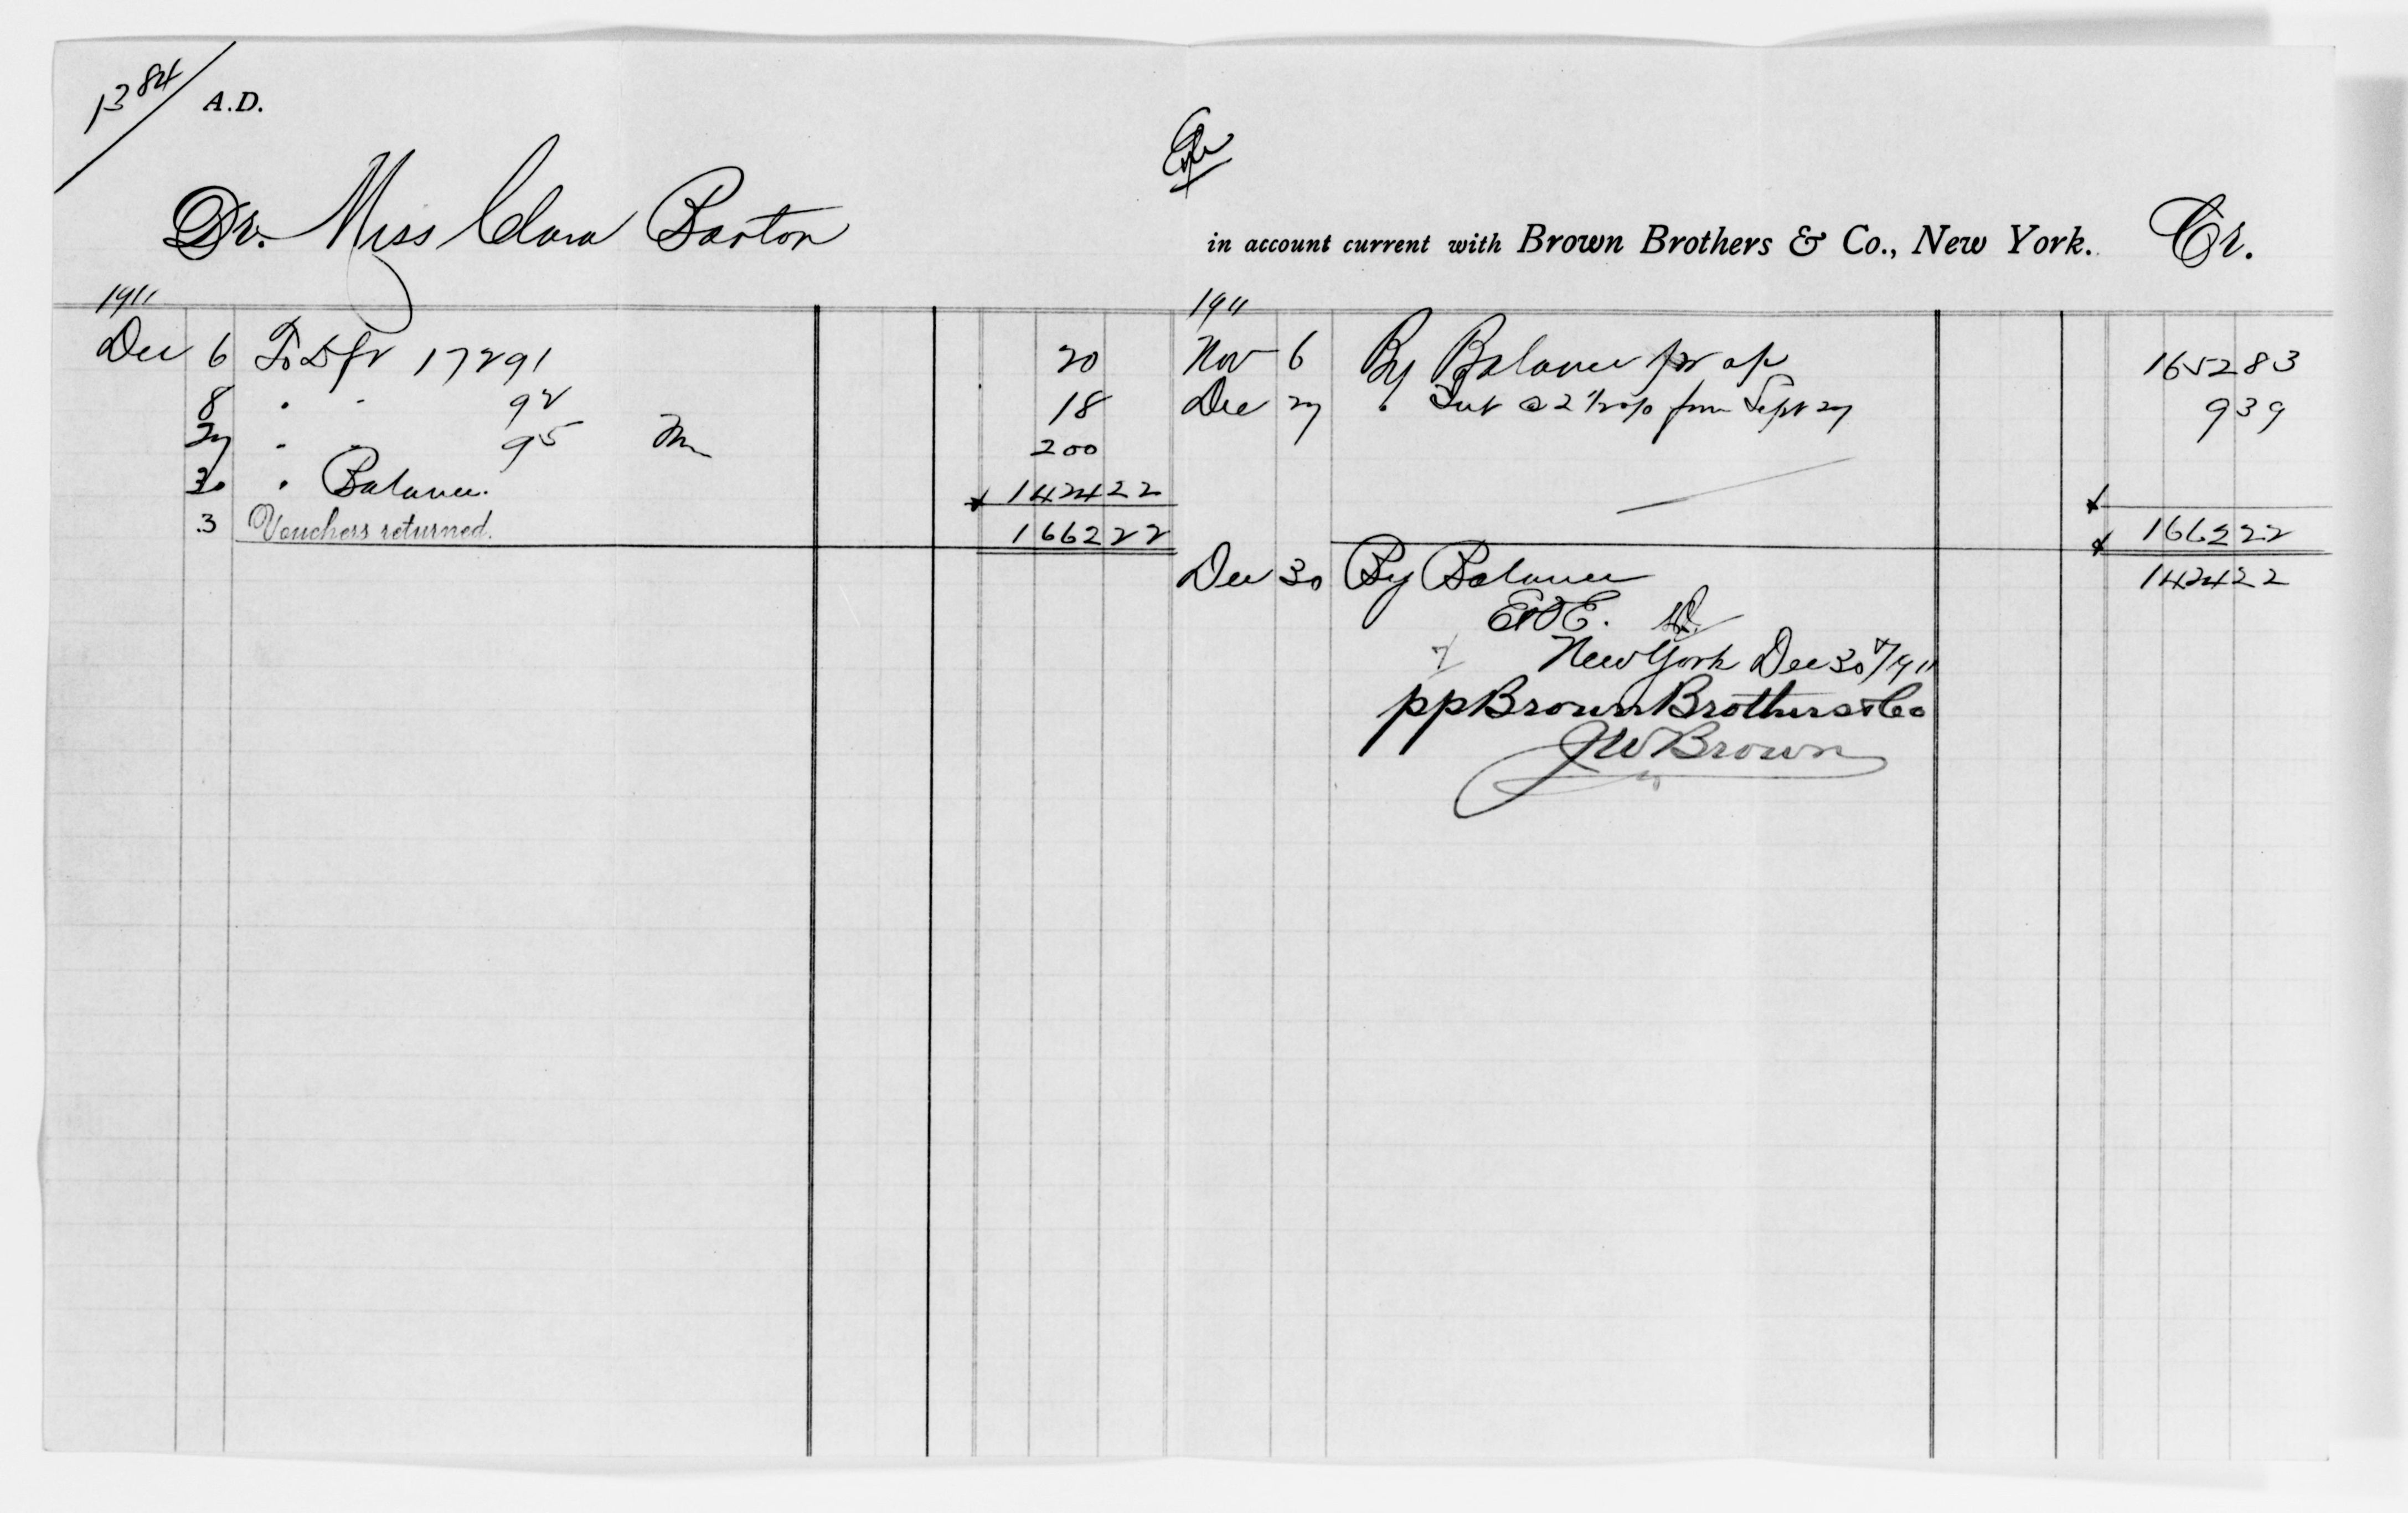 13 84
A.D.
Dr. Miss Clara Barton
in account current with Brown Brothers & Co., New York. Cr.
1911
Dec 6 To Dft 17291 20
8 " " 92 18
27 " " 95 200
30 " Balance. $ 1424 22
3 Vouchers returned. 1662 22
1911
Nov 6 By Balance pr a/c 1652 83
Dec 27 " Int @ 2 1/2 o/o from Sept 27 9 39
$ 1662 22
Dec 30 By Balance $ 1424 22
E&OE.
New York Dec 30th/1911
pp Brown Brothers & Co
JW Brown